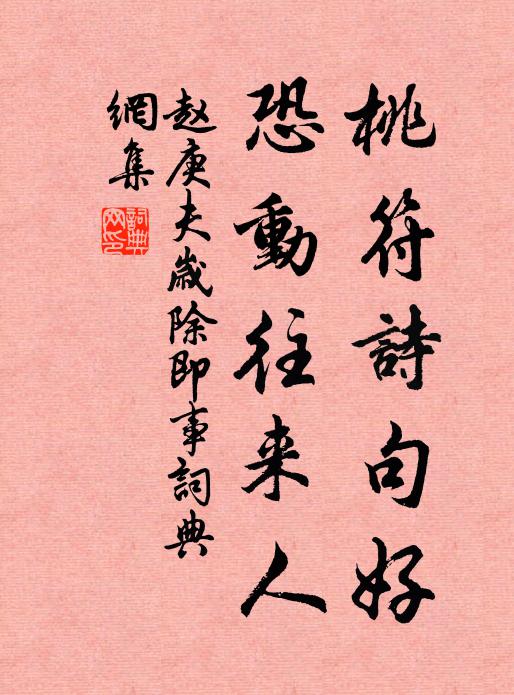 桃符詩句好
恐動往来人
赵庚夫歲除即事詞典
網集
詞典
网印